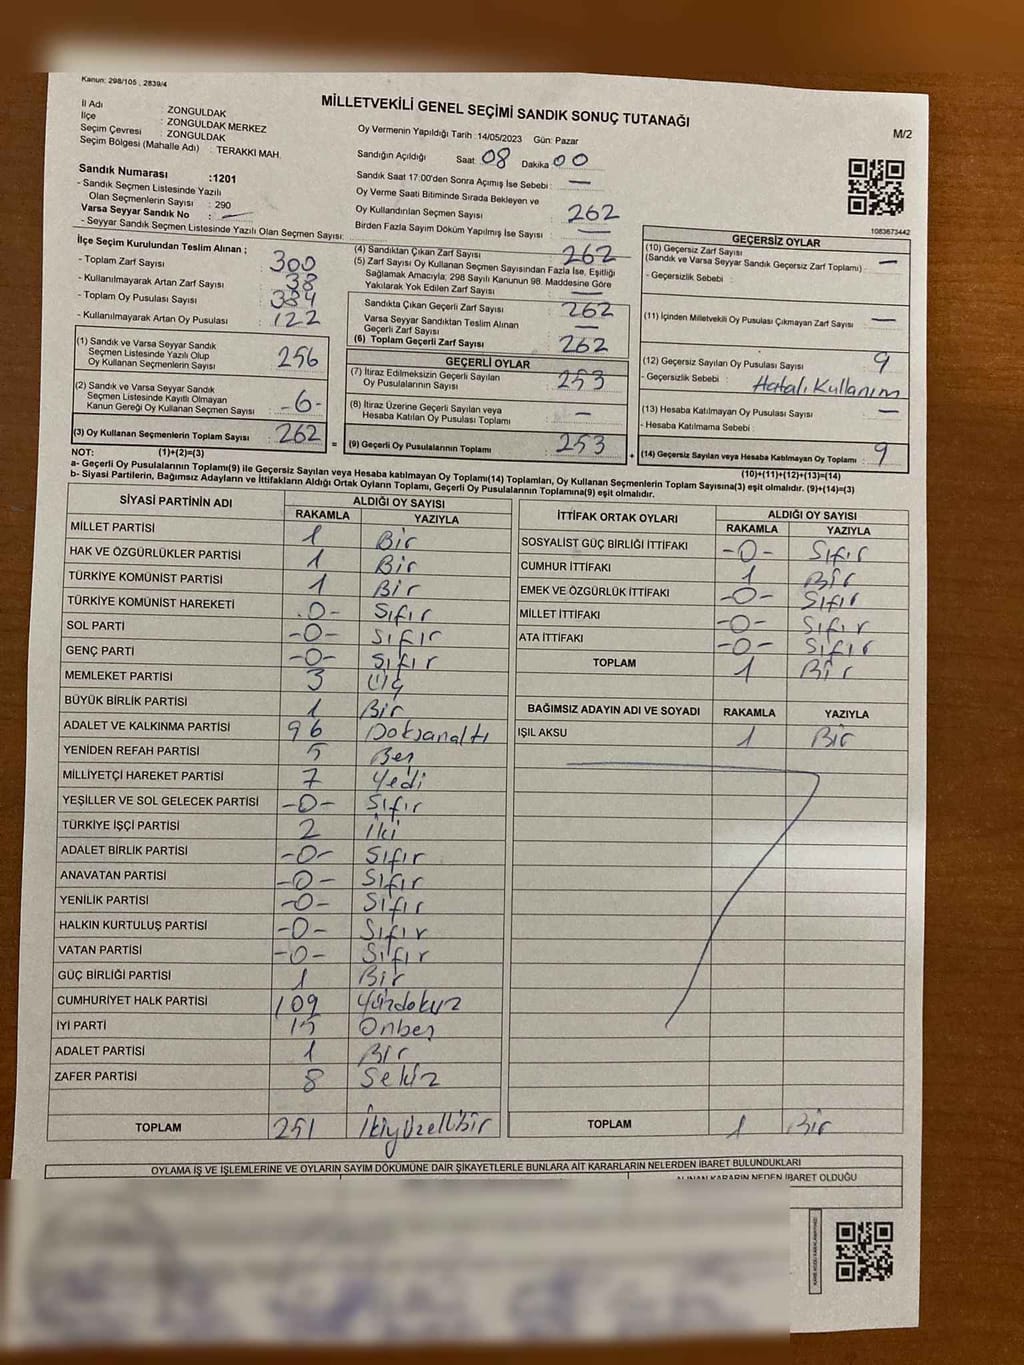 Kanun: 298/105 , 2839/4
MİLLETVEKİLİ GENEL SEÇİMİ SANDIK SONUÇ TUTANAĞI
M/2
İl Adı : ZONGULDAK
İlçe : ZONGULDAK MERKEZ
Seçim Çevresi : ZONGULDAK
Seçim Bölgesi (Mahalle Adı) : TERAKKI MAH.
Sandık Numarası :1201
- Sandık Seçmen Listesinde Yazılı
Olan Seçmenlerin Sayısı : 290
Varsa Seyyar Sandık No : —
- Seyyar Sandık Seçmen Listesinde Yazılı Olan Seçmen Sayısı:
Oy Vermenin Yapıldığı Tarih : 14/05/2023 Gün: Pazar
Sandığın Açıldığı Saat 08 Dakika 00
Sandık Saat 17:00'den Sonra Açımış İse Sebebi : —
Oy Verme Saati Bitiminde Sırada Bekleyen ve
Oy Kullandırılan Seçmen Sayısı : 262
Birden Fazla Sayım Döküm Yapılmış İse Sayısı : —
1083673442
İlçe Seçim Kurulundan Teslim Alınan ;
- Toplam Zarf Sayısı : 300
- Kullanılmayarak Artan Zarf Sayısı : 38
- Toplam Oy Pusulası Sayısı : 384
- Kullanılmayarak Artan Oy Pusulası : 122
(1) Sandık ve Varsa Seyyar Sandık
Seçmen Listesinde Yazılı Olup
Oy Kullanan Seçmenlerin Sayısı : 256
(2) Sandık ve Varsa Seyyar Sandık
Seçmen Listesinde Kayıtlı Olmayan
Kanun Gereği Oy Kullanan Seçmen Sayısı : -6-
(3) Oy Kullanan Seçmenlerin Toplam Sayısı : 262
(4) Sandıktan Çıkan Zarf Sayısı : 262
(5) Zarf Sayısı Oy Kullanan Seçmen Sayısından Fazla İse, Eşitliği
Sağlamak Amacıyla; 298 Sayılı Kanunun 98. Maddesine Göre
Yakılarak Yok Edilen Zarf Sayısı : —
Sandıkta Çıkan Geçerli Zarf Sayısı : 262
Varsa Seyyar Sandıktan Teslim Alınan
Geçerli Zarf Sayısı : —
(6) Toplam Geçerli Zarf Sayısı : 262
GEÇERLİ OYLAR
(7) İtiraz Edilmeksizin Geçerli Sayılan
Oy Pusulalarının Sayısı : 253
(8) İtiraz Üzerine Geçerli Sayılan veya
Hesaba Katılan Oy Pusulası Toplamı : —
= (9) Geçerli Oy Pusulalarının Toplamı : 253
GEÇERSİZ OYLAR
(10) Geçersiz Zarf Sayısı
(Sandık ve Varsa Seyyar Sandık Geçersiz Zarf Toplamı) : —
- Geçersizlik Sebebi :
(11) İçinden Milletvekili Oy Pusulası Çıkmayan Zarf Sayısı : —
(12) Geçersiz Sayılan Oy Pusulası Sayısı : 9
- Geçersizlik Sebebi : Hatalı Kullanım
(13) Hesaba Katılmayan Oy Pusulası Sayısı : —
- Hesaba Katılmama Sebebi :
+ (14) Geçersiz Sayılan veya Hesaba Katılmayan Oy Toplamı : 9
NOT: (1)+(2)=(3)
(10)+(11)+(12)+(13)=(14)
a- Geçerli Oy Pusulalarının Toplamı(9) ile Geçersiz Sayılan veya Hesaba katılmayan Oy Toplamı(14) Toplamları, Oy Kullanan Seçmenlerin Toplam Sayısına(3) eşit olmalıdır. (9)+(14)=(3)
b- Siyasi Partilerin, Bağımsız Adayların ve İttifakların Aldığı Ortak Oyların Toplamı, Geçerli Oy Pusulalarının Toplamına(9) eşit olmalıdır.
SİYASİ PARTİNİN ADI ALDIĞI OY SAYISI
RAKAMLA YAZIYLA
MİLLET PARTİSİ 1 Bir
HAK VE ÖZGÜRLÜKLER PARTİSİ 1 Bir
TÜRKİYE KOMÜNIST PARTİSİ 1 Bir
TÜRKİYE KOMÜNIST HAREKETİ -0- Sıfır
SOL PARTİ -0- Sıfır
GENÇ PARTİ -0- Sıfır
MEMLEKET PARTİSİ 3 Üç
BÜYÜK BİRLİK PARTİSİ 1 Bir
ADALET VE KALKINMA PARTİSİ 96 Doksanaltı
YENİDEN REFAH PARTİSİ 5 Beş
MİLLİYETÇİ HAREKET PARTİSİ 7 Yedi
YEŞİLLER VE SOL GELECEK PARTİSİ -0- Sıfır
TÜRKİYE İŞÇİ PARTİSİ 2 İki
ADALET BİRLİK PARTİSİ -0- Sıfır
ANAVATAN PARTİSİ -0- Sıfır
YENİLİK PARTİSİ -0- Sıfır
HALKIN KURTULUŞ PARTİSİ -0- Sıfır
VATAN PARTİSİ -0- Sıfır
GÜÇ BİRLİĞİ PARTİSİ 1 Bir
CUMHURİYET HALK PARTİSİ 109 Yüzdokuz
İYİ PARTİ 15 Onbeş
ADALET PARTİSİ 1 Bir
ZAFER PARTİSİ 8 Sekiz
TOPLAM 251 İkiyüzellibir
İTTİFAK ORTAK OYLARI ALDIĞI OY SAYISI
RAKAMLA YAZIYLA
SOSYALİST GÜÇ BİRLİĞİ İTTİFAKI -0- Sıfır
CUMHUR İTTİFAKI 1 Bir
EMEK VE ÖZGÜRLÜK İTTİFAKI -0- Sıfır
MİLLET İTTİFAKI -0- Sıfır
ATA İTTİFAKI -0- Sıfır
TOPLAM 1 Bir
BAĞIMSIZ ADAYIN ADI VE SOYADI RAKAMLA YAZIYLA
IŞIL AKSU 1 Bir
TOPLAM 1 Bir
OYLAMA İŞ VE İŞLEMLERİNE VE OYLARIN SAYIM DÖKÜMÜNE DAİR ŞİKAYETLERLE BUNLARA AİT KARARLARIN NELERDEN İBARET BULUNDUKLARI
ALINAN KARARIN NEDEN İBARET OLDUĞU